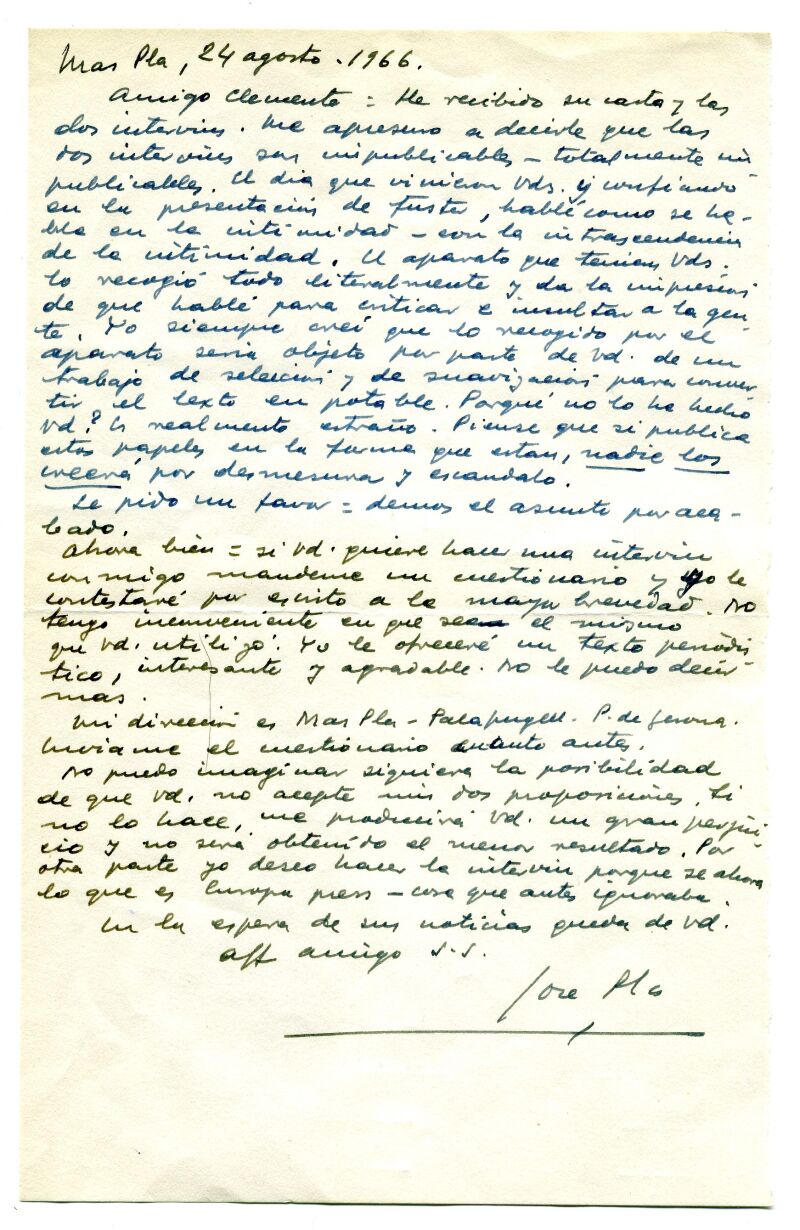 Mas Pla, 24 agosto. 1966.
Amigo Clemente = He recibido su carta y las
dos intervius. Me apresuro a decirle que las
dos intervius son impublicables – totalmente im
publicables. El dia que vinieron Vds. y confiando
en la presentación de Fuster, hablé como se ha-
bla en la intimidad – con la intrascendencia
de la intimidad. El aparato que tenian Vds.
lo recogió todo literalmente y da la impresión
de que hablé para criticar e insultar a la gen-
te. Yo siempre creí que lo recogido por el
aparato seria objeto por parte de Vd. de un
trabajo de selección y de suavización para conver
tir el texto en potable. Porqué no lo ha hecho
Vd? Es realmente extraño. Piense que si publica
estos papeles en la forma que estan, nadie los
creerá por desmesura y escandalo.
Le pido un favor = demos el asunto por aca-
bado.
Ahora bien = si Vd. quiere hacer una interviu
conmigo mandeme un cuestionario y yo le
contestaré por escrito a la mayor brevedad. No
tengo inconveniente en que sea el mismo
que Vd. utilizó. Yo le ofreceré un texto periodis
tico, interesante y agradable. No le puedo decir
mas.
Mi dirección es Mas Pla – Palafrugell. P. de Gerona.
Enviame el cuestionario cuanto antes.
No puedo imaginar siquiera la posibilidad
de que Vd. no acepte mis dos proposiciónes. Si
no lo hace, me producirá Vd. un gran perjui-
cio y no será obtenido el menor resultado. Por
otra parte yo deseo hacer la interviu porque se ahora
lo que es Europa press – cosa que antes ignoraba.
En la espera de sus noticias queda de Vd.
aff amigo S.S.
Jose Pla